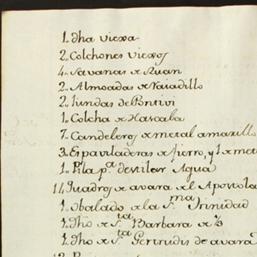 1. dha viexa
2. Colchones viexos
4. Savanas de Ruan
2. Almoadas de
2. fundas de Pontivi
1. Colcha de
7. Candeleros de metal amarillo
3. Espaviladeras de fierro, y 1 de met
1. Pila pª destilar Agua
14. Quadros de avara del Apostola
1. Obalado de la SSma Trinidad
1. Dho de Sta Barbara de
1. Dho de Sta Gertrudis de avara